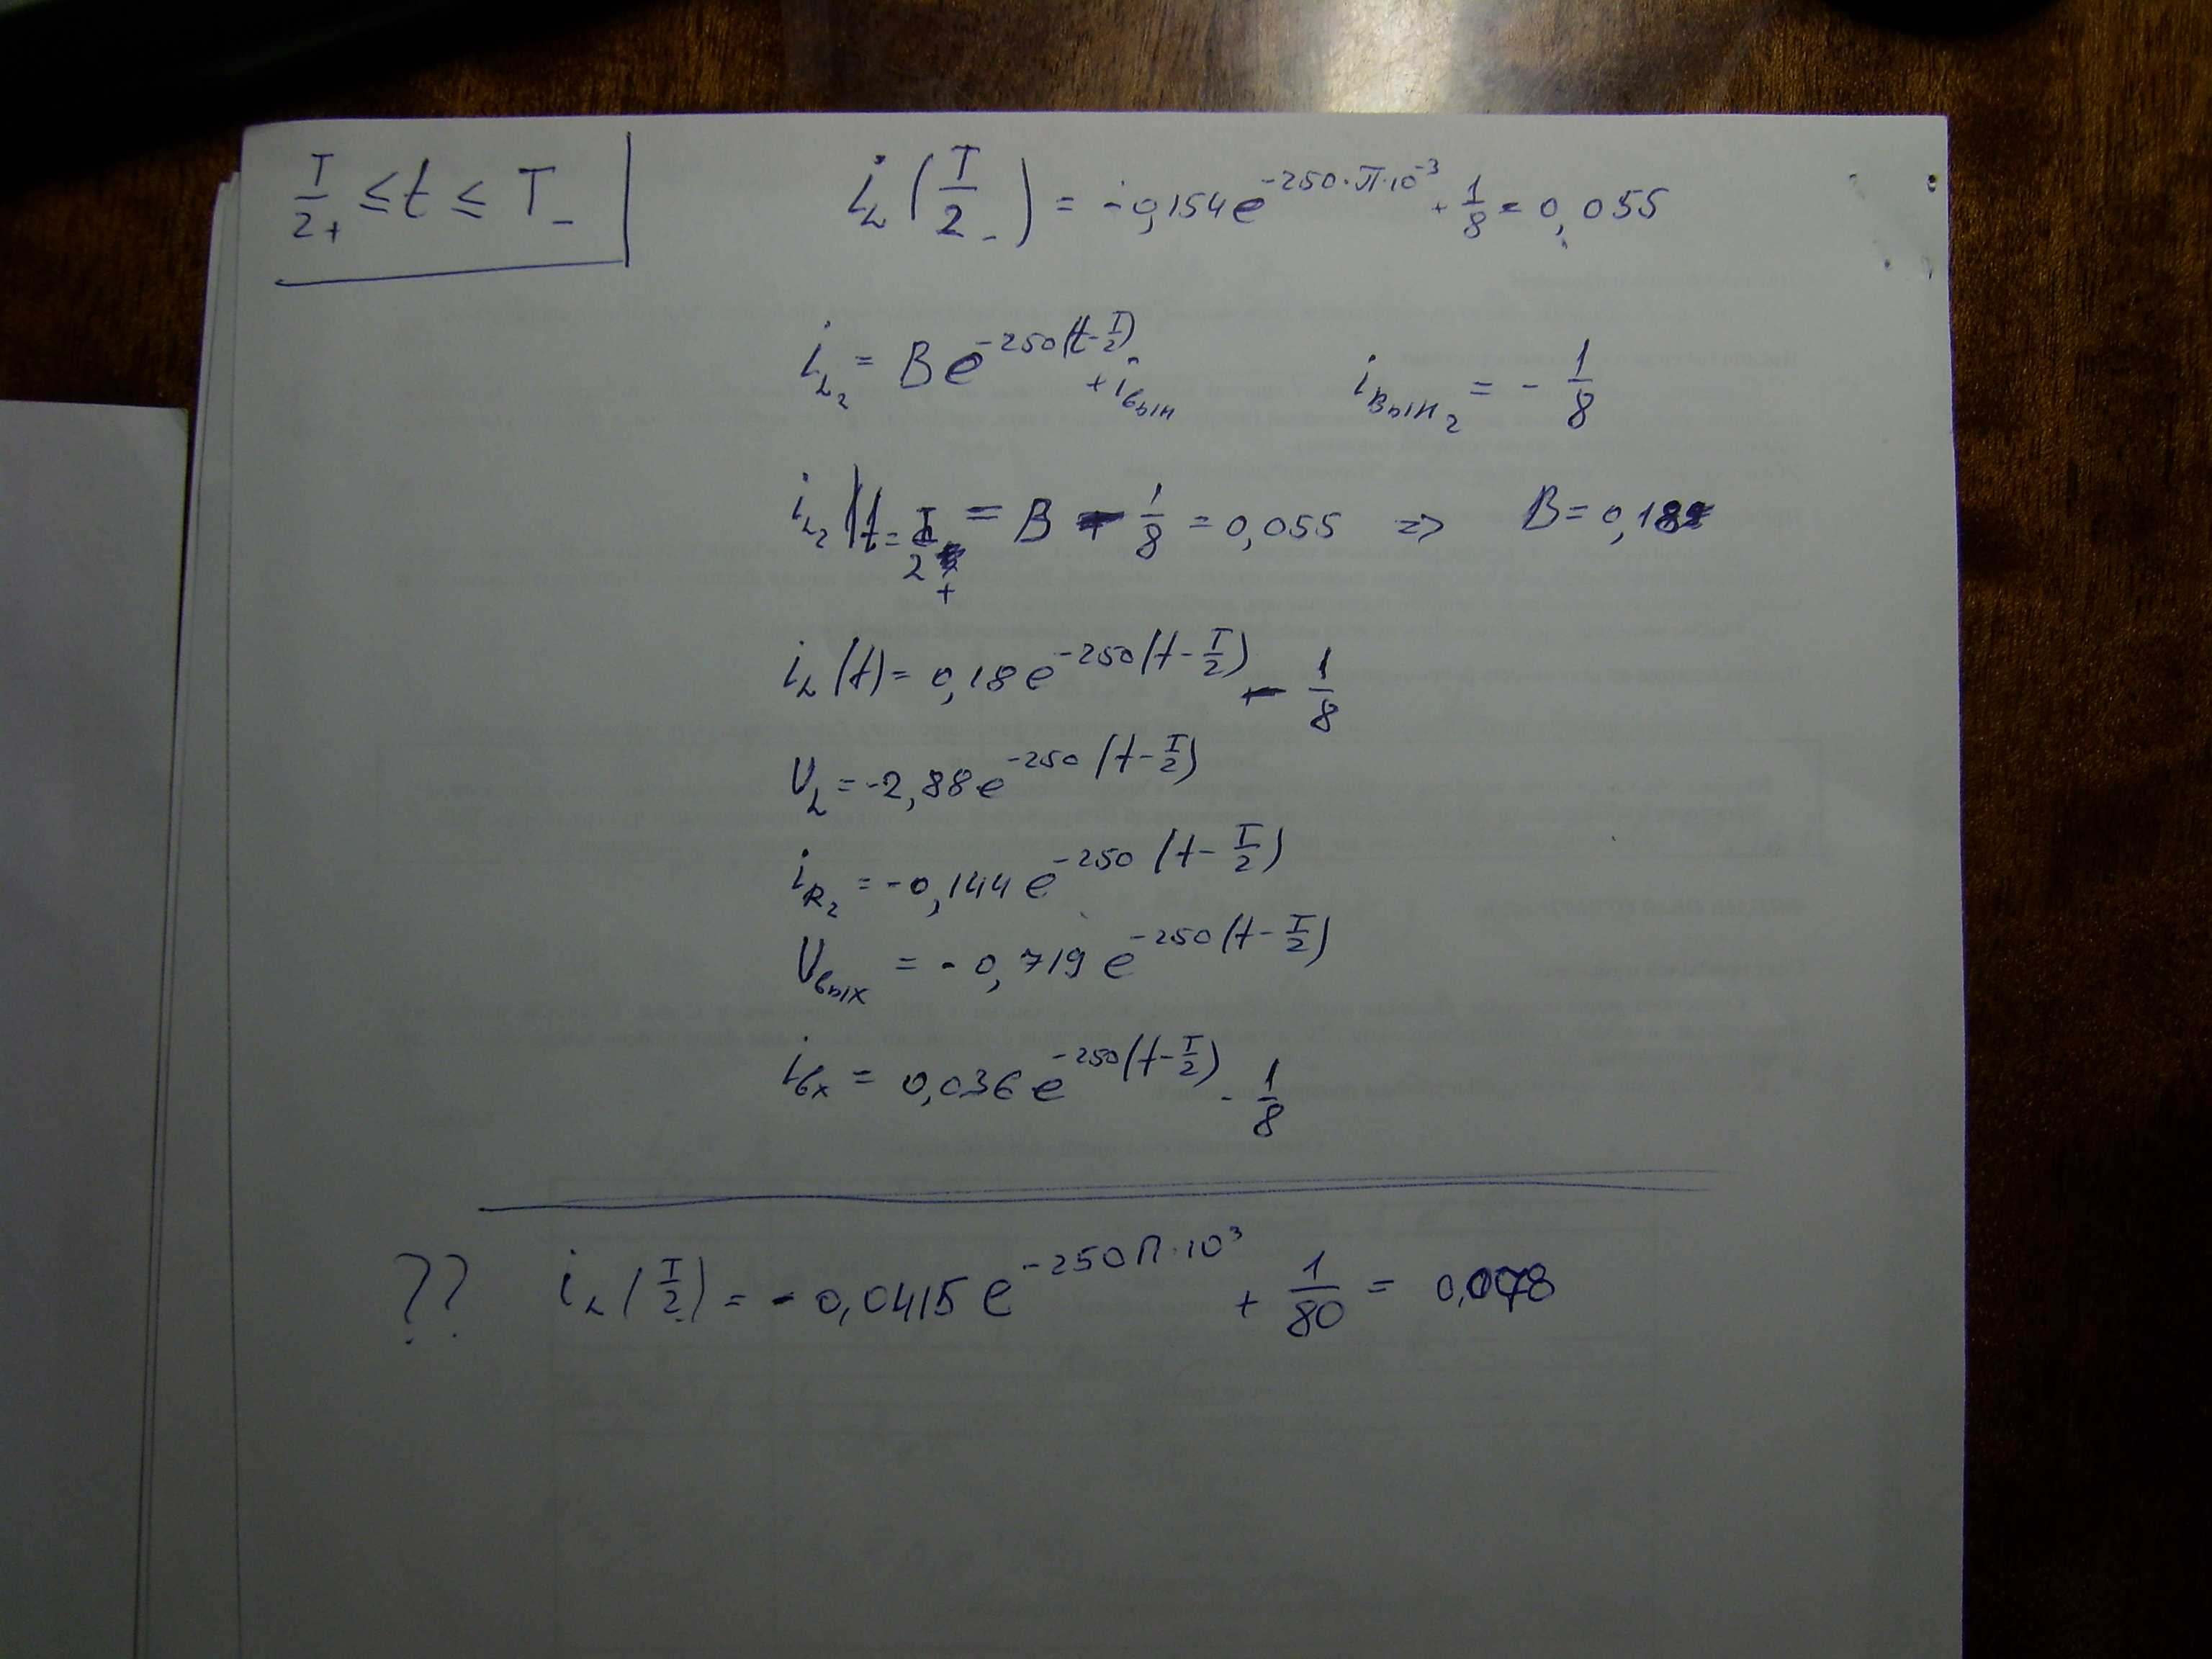 T/2₊ ≤ t ≤ T₋
i_L(T/2₋) = -0,154e^(-250·π·10⁻³) + 1/8 = 0,055
i_L₂ = Be^(-250(t-T/2)) + i_вын    i_вын₂ = - 1/8
i_L₂|t=T/2₊ = B - 1/8 = 0,055 => B = 0,18
i_L(t) = 0,18e^(-250(t-T/2)) - 1/8
U_L = -2,88e^(-250(t-T/2))
i_R₂ = -0,144e^(-250(t-T/2))
U_вых = -0,719e^(-250(t-T/2))
i_вх = 0,036e^(-250(t-T/2)) - 1/8
?? i_L(T/2) = -0,0415e^(-250П·10³) + 1/80 = 0,078